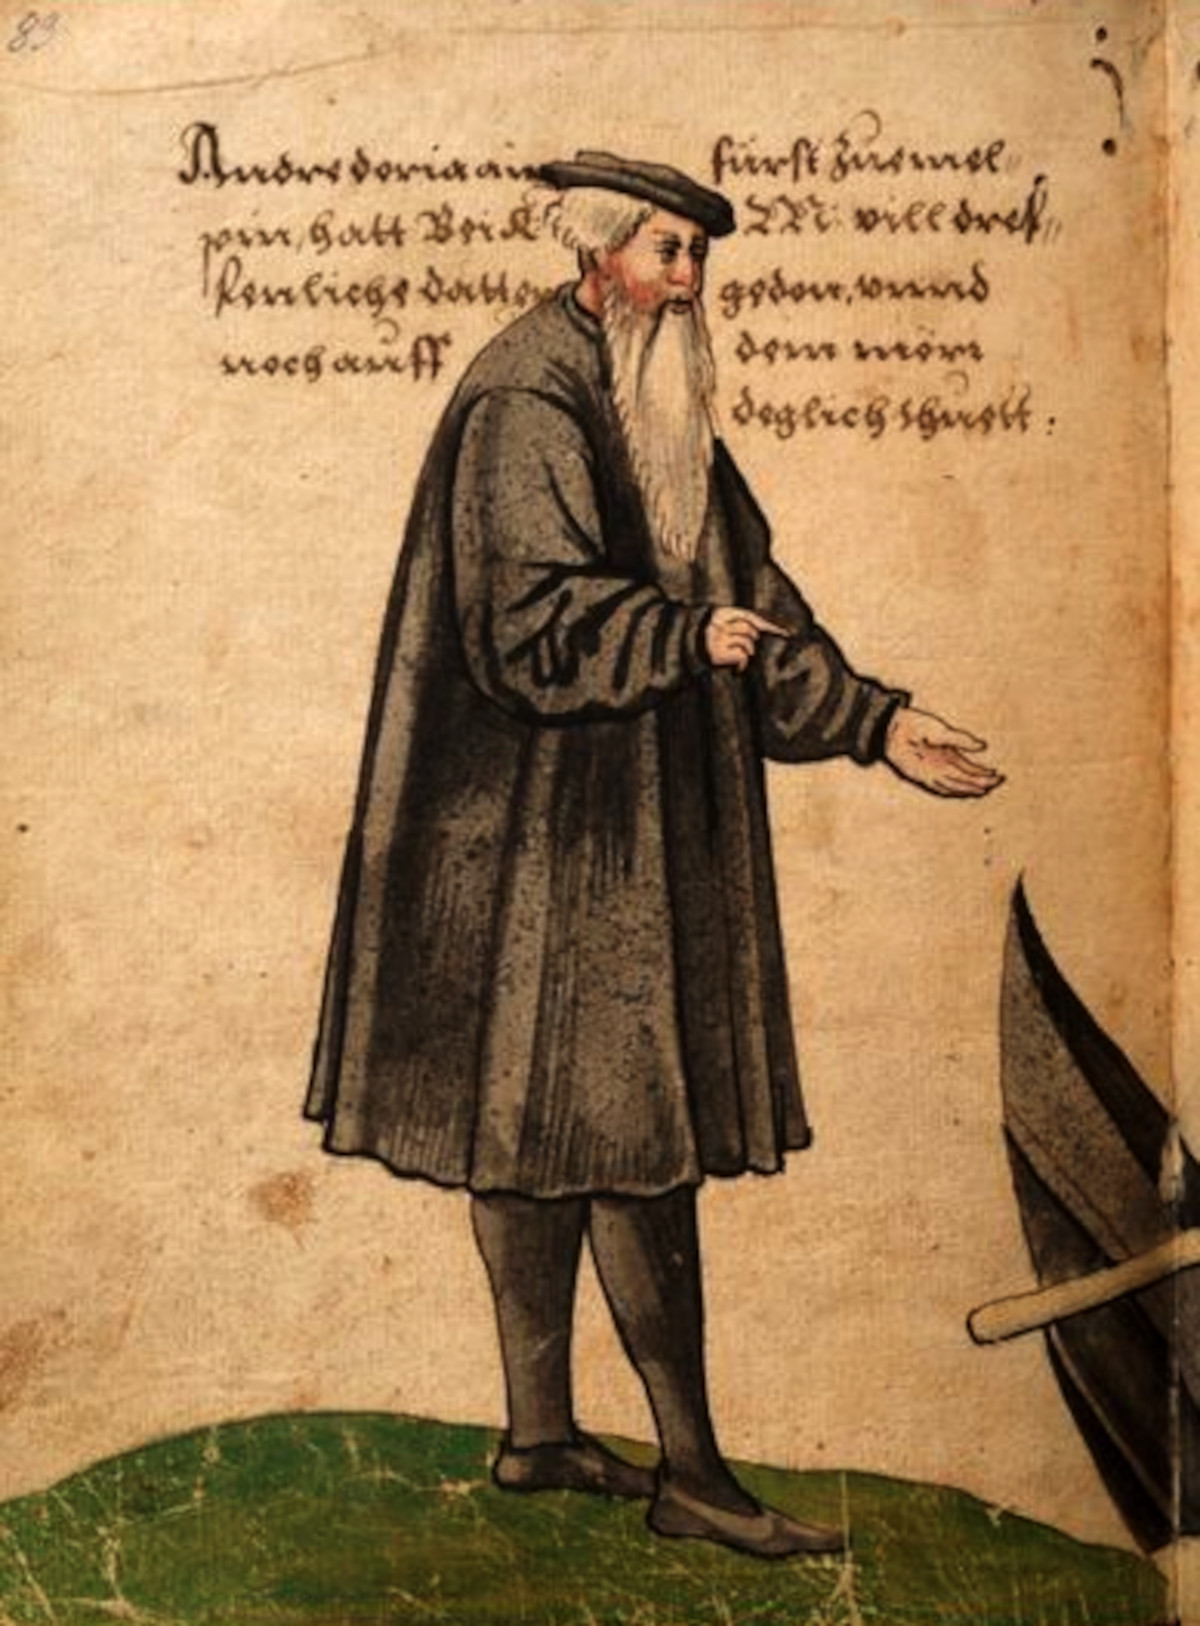 83
Andre doria ain fürst zue mel
pin, hatt Kei K M: vill dref,,
fenliche datten geden, vnnd
noch auff dem mörr
deglich thuett :